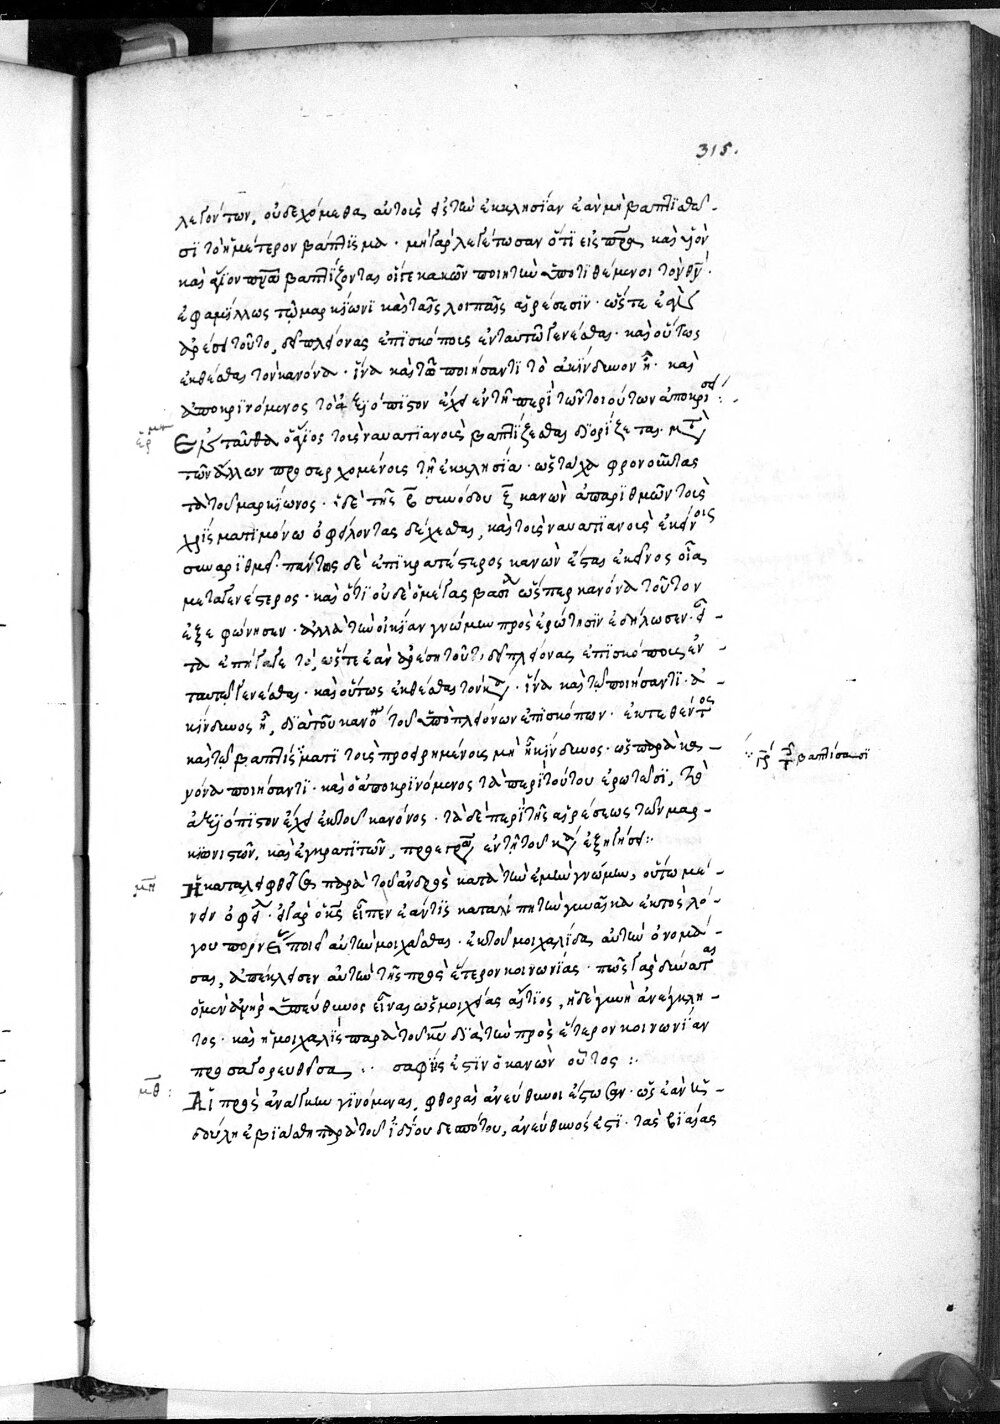 315.
λεγόντων, οὐ δεχόμεθα αὐτοὺς εἰς τὴν ἐκκλησίαν ἐὰν μὴ βαπτισθῶ-
σι τὸ ἡμέτερον βάπτισμα · μὴ γὰρ λεγέτωσαν ὅτι εἰς πρα καὶ υἱὸν
καὶ ἅγιον πνα βαπτίζονται οἵγε κακῶν ποιητὴν ὑποτιθέμενοι τὸν θν ·
ἐφαμίλλως τῷ μαρκίωνι καὶ ταῖς λοιπαῖς αἱρέσεσιν · ὥστε ἐὰν
ἀρέσει τοῦτο, δεῖ πλείονας ἐπισκόπους ἐν ταυτῷ γενέσθαι · καὶ οὕτως
ἐκθέσθαι τὸν κανόνα · ἵνα καὶ τῷ ποιήσαντι τὸ ἀκίνδυνον ᾖ · καὶ
ὁ ἀποκρινόμενος τὸ ἀξιόπιστον ἔχει ἐν τῇ περὶ τῶν τοιούτων ἀποκρίσει :
ἑρμ
Ἐνταῦθα ὁ ἅγιος τοὺς ναυατιανοὺς βαπτίζεσθαι διορίζεται μετὰ
τῶν ἄλλων προσερχομένους τῇ ἐκκλησίᾳ · ὡς τάχα φρονοῦντας
τὰ τοῦ μαρκίωνος · ὁ δὲ τῆς β συνόδου ζ κανὼν ἀπαριθμῶν τοὺς
χρίσματι μόνω ὀφείλοντας δέχεσθαι, καὶ τοὺς ναυατιανοὺς ἐκείνοις
συναριθμεῖ · πάντως δὲ ἐπικρατέστερος κανὼν ἔσται ἐκεῖνος οἷα
μεταγενέστερος · καὶ ὅτι οὐδὲ ὁ μέγας βασιλ ὥσπερ κανόνα τοῦτον
ἐξεφώνησεν · ἀλλὰ τὴν οἰκείαν γνώμην πρὸς ἐρώτησιν ἐδήλωσεν · εἶ-
τα ἐπήγαγε τὸ, ὥστε ἐὰν ἀρέση τοῦτο δεῖ πλείονας ἐπισκόπους ἐν
ταυτῷ γενέσθαι · καὶ οὕτως ἐκθέσθαι τὸν κανόνα · ἵνα καὶ τῷ ποιήσαντι · ἀ-
κίνδυνος ᾖ, διὰ τοῦ κανόνος τοῦ ὑπὸ πλειόνων ἐπισκόπων · ἐκτεθέντος
καὶ τῷ βαπτίσματι τοὺς προειρημένους μὴ ᾖ κίνδυνος · ὡς παρὰ κα-
νόνα ποιήσαντι · καὶ ὁ ἀποκρινόμενος τὰ περὶ τούτου ἐρωτῶσι, τὸ
ἀξιόπιστον ἔχει ἐκ τοῦ κανόνος · τὰ δὲ περὶ τῆς αἱρέσεως τῶν μαρ-
κιωνιστῶν, καὶ ἐγκρατιτῶν, προεγρα ἐν τῇ τοῦ κα ἐξηγήσει :
γρ τῷ βαπτίσαντι
μη
Ἡ καταλειφθεῖσα παρὰ τοῦ ἀνδρὸς κατὰ τὴν ἐμὴν γνώμην, οὕτω μέ-
νειν ὀφείλ · εἰ γὰρ ὁ κς εἶπεν ἐάν τις καταλίπη τὴν γυναῖκα ἐκτὸς λό-
γου πορνείας ποιεῖ αὐτὴν μοιχᾶσθαι · ἐκ τοῦ μοιχαλίδα αὐτὴν ὀνομά-
σαι, ἀπέκλεισεν αὐτὴν τῆς πρὸς ἕτερον κοινωνίας · πῶς γὰρ δύναται
ὁ μὲν ἀνὴρ ὑπεύθυνος εἶναι ὡς μοιχείας αἴτιος, ἡ δὲ γυνὴ ἀνέγκλη-
τος · καὶ ἡ μοιχαλὶς παρὰ τοῦ κυ διὰ τὴν πρὸς ἕτερον κοινωνίαν
προσαγορευθεῖσα · σαφής ἐστιν ὁ κανὼν οὗτος :
μθ :
Αἱ πρὸς ἀνάγκην γινόμεναι φθοραὶ ἀνεύθυνοι ἔστωσαν · ὡς ἐὰν καὶ
δούλη ἐβιάσθη παρὰ τοῦ ἰδίου δεσπότου, ἀνεύθυνός ἐστι · τὰς βιαίας